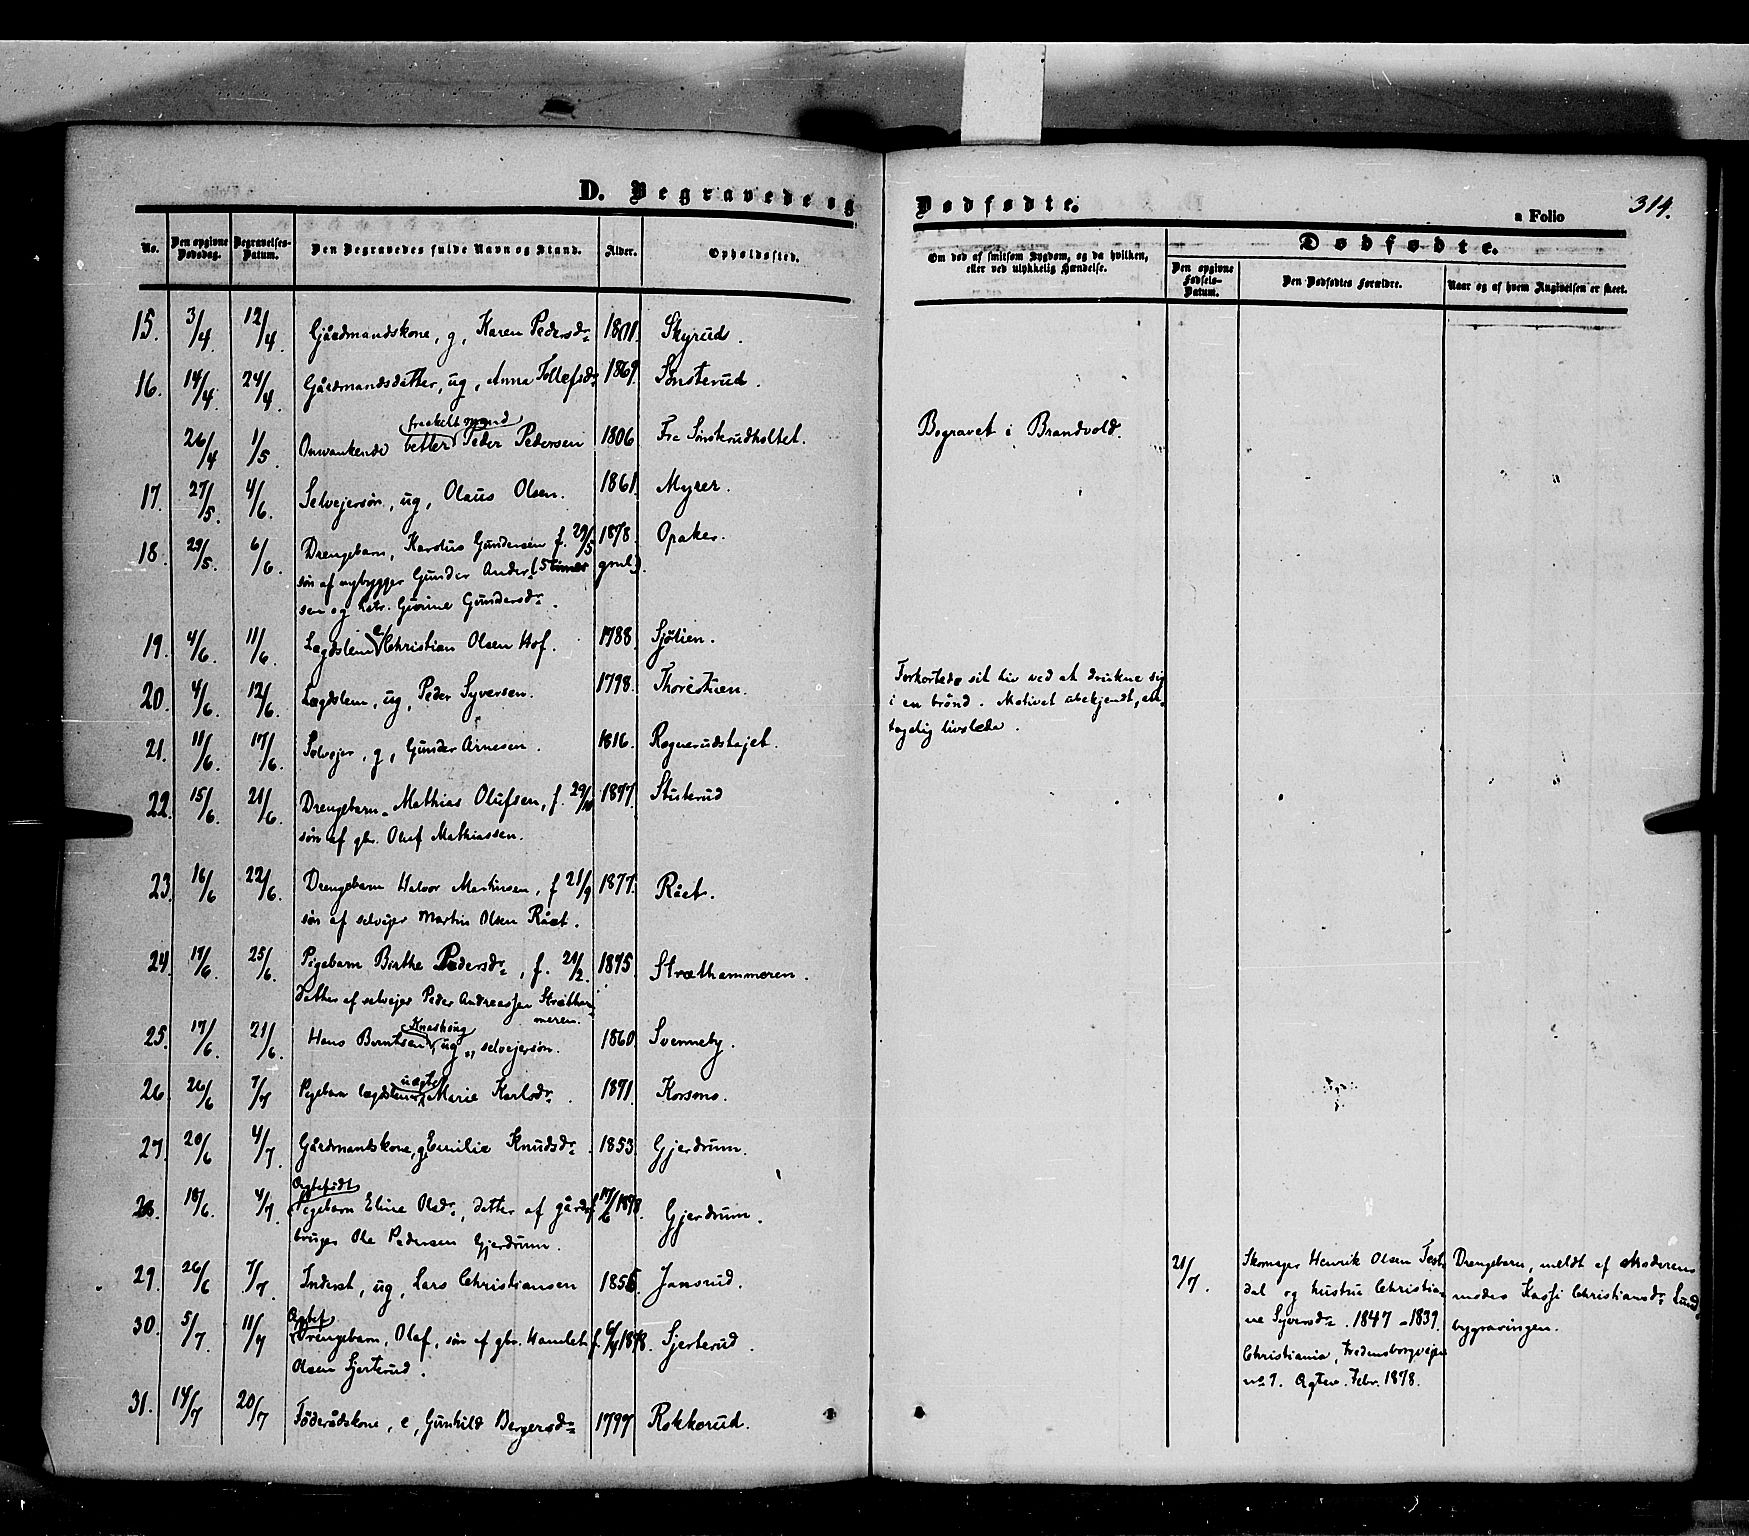 D. Begravede og Dødfødte.
a Folio 314.
No. Den opgivne Dødsdag. Begravelses-Datum. Den Begravedes fulde Navn og Stand. Alder. Opholdssted.
Om død af smitsom Sygdom, og da hvilken, eller ved ulykkelig Hændelse.
Dødfødte.
Den opgivne Fødsels-Datum. Den Dødfødtes Forældre. Naar og af hvem Angivelsen er skeet.
15. 3/4. 12/4. Gjårdmandskone, g, Karen Pedersdr. 1801. Skyrud.
16. 14/4. 24/4. Gårdmandsdatter, ug, Anne Tollefsdr. 1869. Sønsterud.
fraskilt mand
26/4 1/5. Omvankende betler Peder Pedersen 1806. Fra Sønsterudholtet. Begravet i Brandvold.
17. 27/5. 4/6. Selvejersøn, ug, Olaus Olsen. 1861. Myrer.
18. 29/5. 6/6. Drengebarn, Karolus Gundersen f. 29/5 1878. Opaker.
søn af nybygger Gunder Ander- (5 timer gml.)
sen og hstr. Gurine Gundersdr.
19. 4/6. 11/6. Lægdslem e Christian Olsen Hof. 1788. Sjølien.
20. 4/6. 12/6. Lægdslem, ug, Peder Syversen. 1798. Thorestuen.
Forkortede sit liv ved at drukne sig
i en brønd. Motivet ubekjendt, an-
tagelig livslede.
21. 11/6. 17/6. Selvejer, g, Gunder Arnesen. 1816. Rognerudshøjet.
22. 15/6. 21/6. Drengebarn Mathias Olufsen, f. 29/10 1877. Stusterud
søn af gbr. Oluf Mathiassen.
23. 16/6 22/6. Drengebarn Halvor Martinsen, f 21/9 1877. Rået.
søn af selvejer Martin Olsen Rået.
24. 17/6. 25/6. Pigebarn Birthe Pedersdr., f. 21/2. 1875. Stræthammeren.
datter af selvejer Peder Andreassen Stretham-
meren.
Knashoug
25. 17/6. 21/6. Hans Berntsen ug, selvejersøn. 1860. Svenneby.
uægte
26. 26/6 7/7. Pigebarn lægdslem Marie Karlsdr. 1871. Korsmo.
27. 20/6 4/7. Gårdmandskone, g, Emilie Knudsdr. 1853. Gjerdrum.
Ægtefødt
28. 18/6. 4/7. Pigebarn Eline Olsdr., datter af gård- f 17/6 1878. Gjerdrum.
bruger Ole Pedersen Gjerdrum.
29. 26/6 7/7. Inderst, ug, Lars Christiansen 1856. Jansrud.
Ægtef.
30. 5/7. 11/7 Drengebarn, Olaf, søn af gbr. f. 1878. Sjerterud.
Olsen Sjerterud.
31. 14/7 20/7 Føderådskone, e, Gunhild Bergersdr. 1797 Rokkerud.
21/7. Skomager Henrik Olsen
dal og hustru Christia-
ne Syversdr. 1847 - 1839.
Christiania, Fredensborgvejen
no 7. Ægtev. Febr. 1878.
Drengebarn, meldt af Moderens
moder Kassi Christiansdr. Lund
bygravingen.